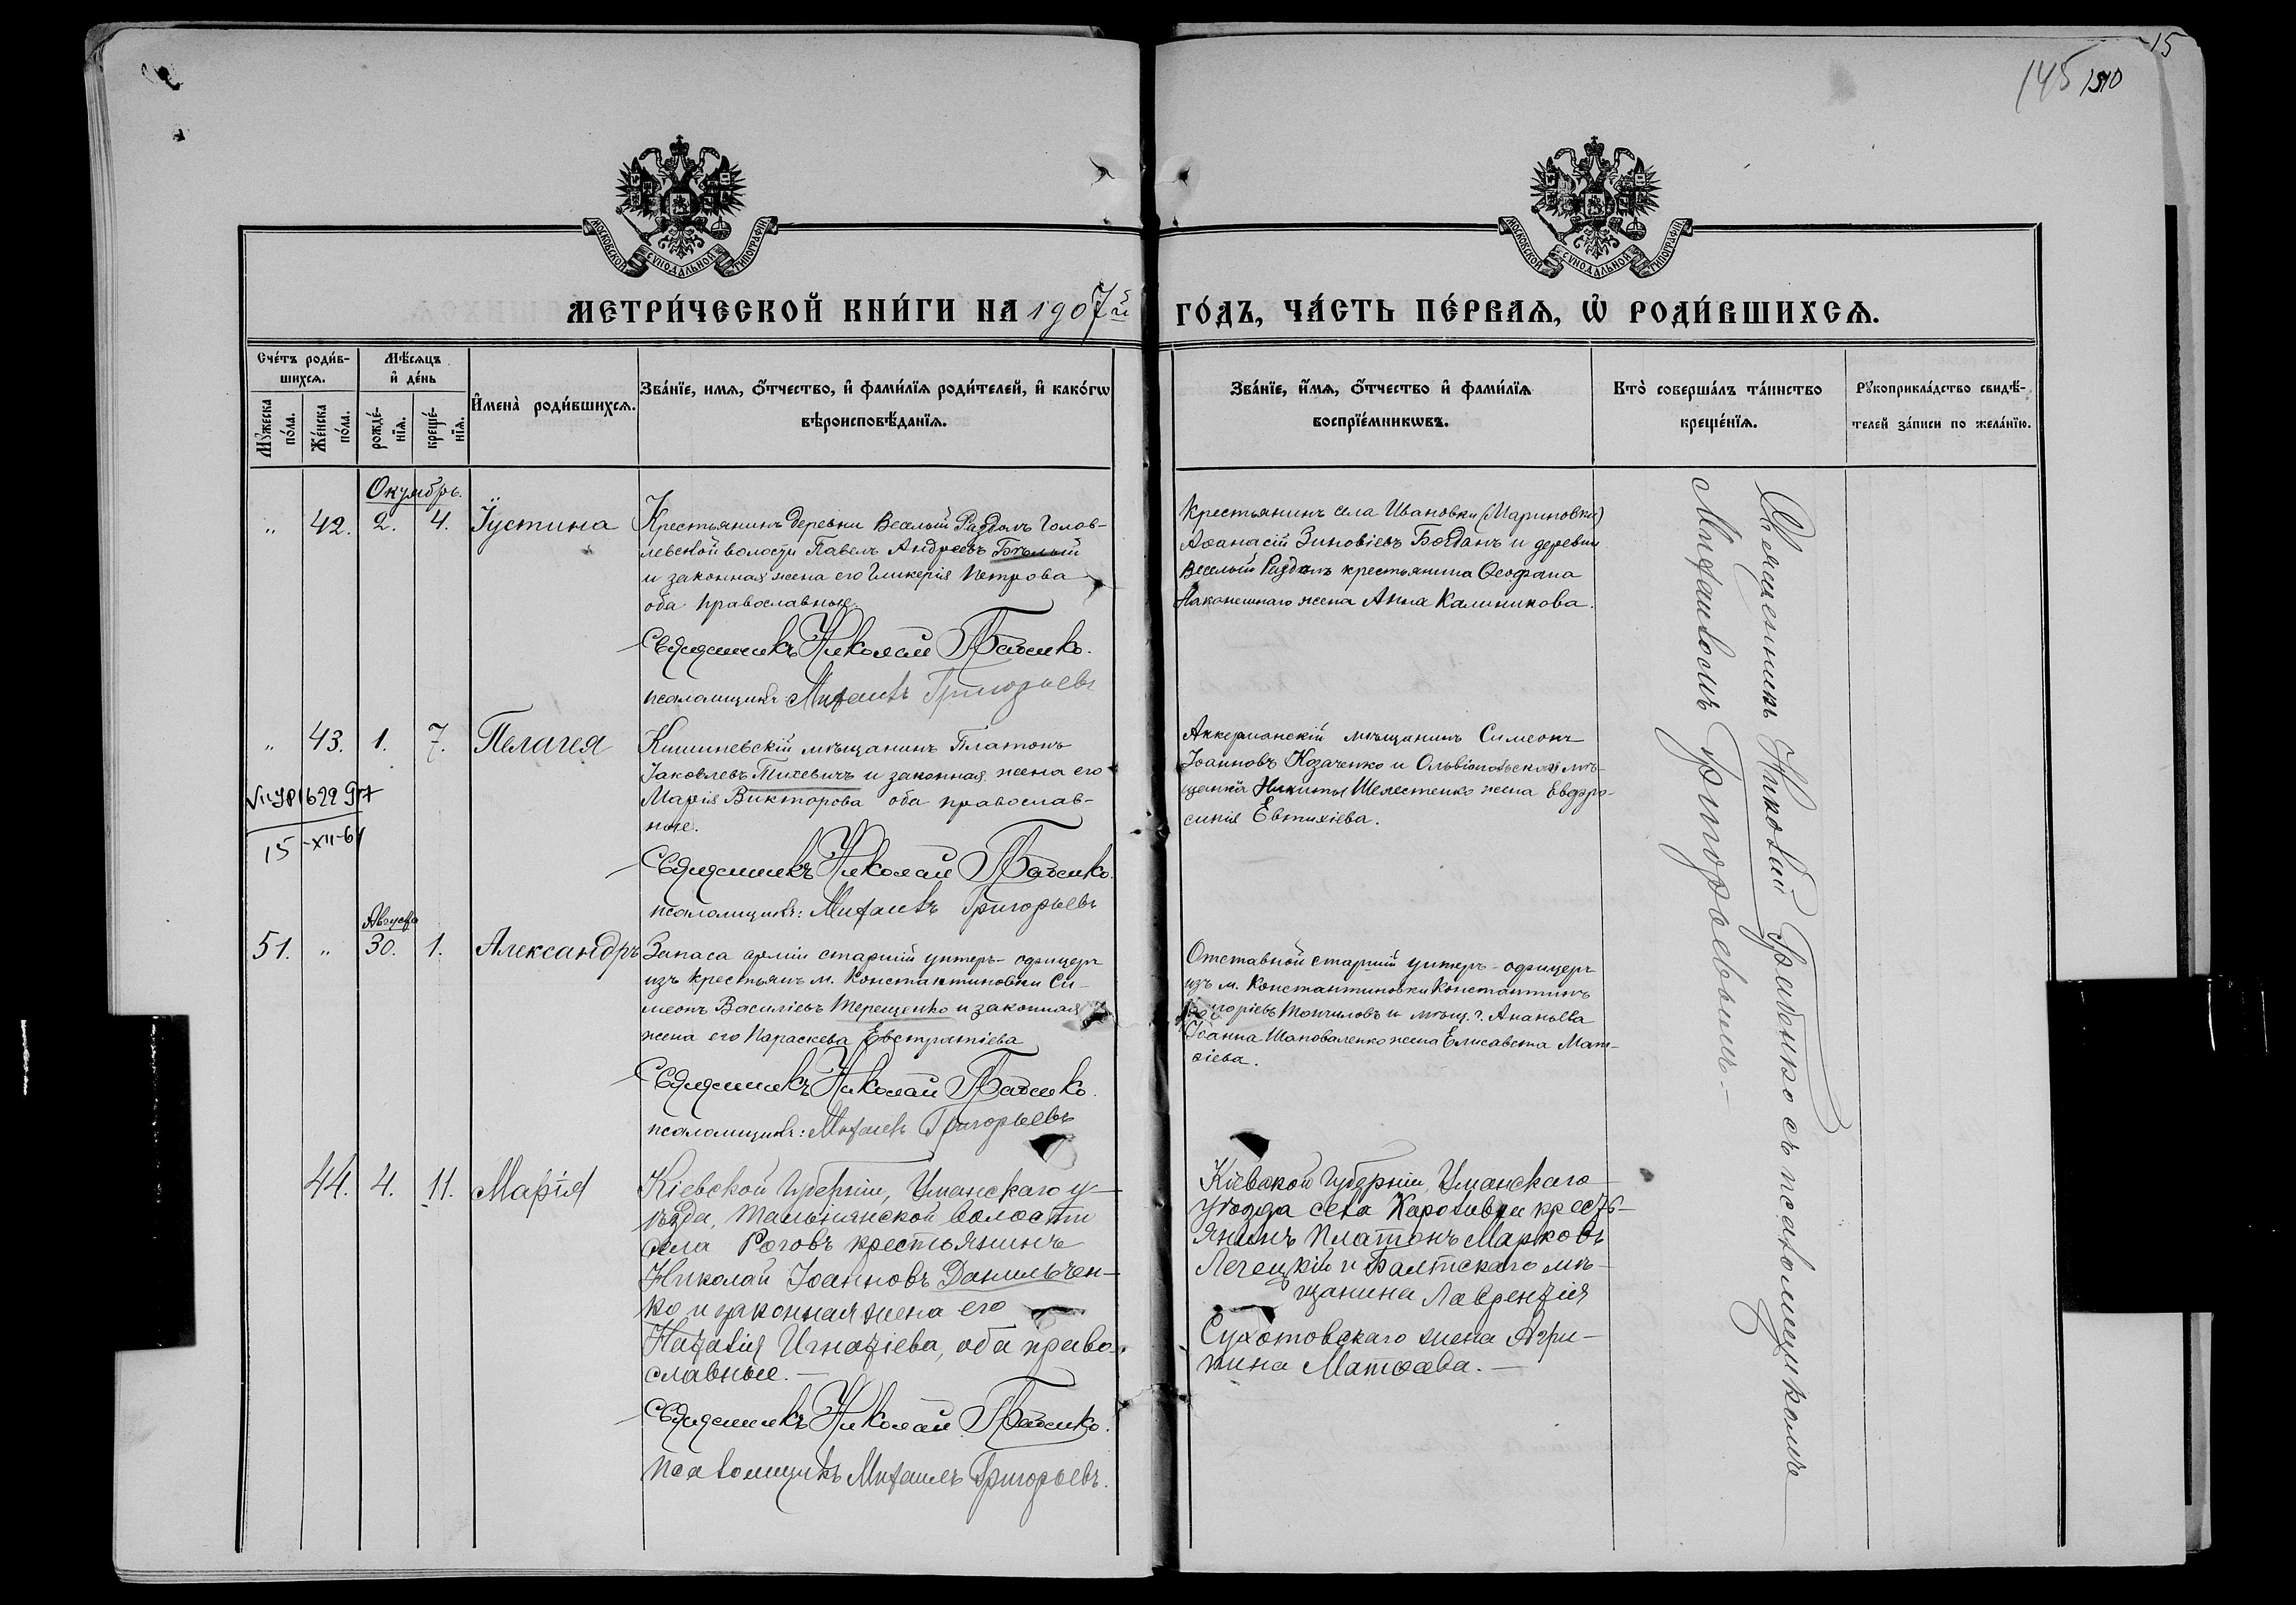 15
145 1510
МОСКОВСКОЙ СѴНОДАЛЬНОЙ ТИПОГРАФІИ
МОСКОВСКОЙ СѴНОДАЛЬНОЙ ТИПОГРАФІИ
МЕТРИ́ЧЕСКОЙ КНИ́ГИ НА 1907й
ГО́ДЪ, ЧА́СТЬ ПЕ́РВАѦ, Ѡ҆ РОДИ́ВШИХСѦ.
Сче́тъ роди́в-
шихсѧ.
Мꙋ́жеска по́ла.
Же́нска по́ла.
Мѣ́сѧцъ
и҆ де́нь
рожде́-
нїѧ.
креще́-
нїѧ.
И҆мена̀ роди́вшихсѧ.
Зва́нїе, имѧ, ѻ҆́тчество, и҆ фами́лїѧ роди́телей, и҆ како́гѡ
вѣроисповѣ́данїѧ.
Зва́нїе, и҆́мѧ, ѻ҆́тчество и҆ фами́лїѧ
воспрїе́мникѡвъ.
Кто̀ соверша́лъ та́инство
креще́нїѧ.
Рꙋкоприкла́дство свидѣ́-
телей за́писи по жела́нїю.
Октябрь.
„ 42. 2. 4. Іустина
Крестьянинъ деревни Веселый Раздолъ Голов-
левской волости Павелъ Андреевъ Бѣлый
и законная жена его Гликерія Петрова
оба православные.
Священникъ Николай Грабенко.
псаломщикъ Михаилъ Григорьевъ
Крестьянинъ села Ивановки (Мариновки)
Аѳанасій Зиновіевъ Богданъ и деревни
Веселый Раздолъ крестьянина Ѳеофана
Наконешнаго жена Анна Калиникова.
„ 43. 1. 7. Пелагея
Кишиневскій мѣщанинъ Платонъ
Іаковлевъ Тихевичъ и законная жена его
Марія Викторова оба православ-
ные.
Священникъ Николай Грабенко.
псаломщикъ: Михаилъ Григорьевъ
Аккерманскій мѣщанинъ Симеонъ
Іоанновъ Козаченко и Ольвіопольская мѣ-
щанка Никиты Шелестенко жена Евфро-
синія Евтихіева.
15-XII-61
Августа
51. „ 30. 1. Александръ
Запаса арміи старшій унтеръ-офицеръ
изъ крестьянъ м. Константиновки Си-
меонъ Василіевъ Терещенко и законная
жена его Параскева Евстратіева
Священникъ Николай Грабенко.
псаломщикъ: Михаилъ Григорьевъ
Отставной старшій унтеръ-офицеръ
изъ м. Константиновки Константинъ
Григоріевъ Томчиловъ и мѣщ. г. Ананьева
Іоанна Шаповаленко жена Елисавета Мат-
ѳіева.
44. 4. 11. Марія
Кіевской губерніи, Уманскаго у-
ѣзда, Тальянской волости
села Роговъ крестьянинъ
Николай Іоанновъ Данильчен-
ко и законная жена его
Наталія Игнатіева, оба право-
славные.—
Священникъ Николай Грабенко.
Псаломщикъ Михаилъ Григорьевъ.
Кіевской губерніи, Уманскаго
уѣзда села кресть-
янинъ Платонъ Марковъ
Легецкій и Балтскаго мѣ-
щанина Лаврентія
Сухотовскаго жена Агри-
пина Матѳева.—
Священникъ Николай Грабенко съ псаломщикомъ
Михаиломъ Григорьевымъ.—